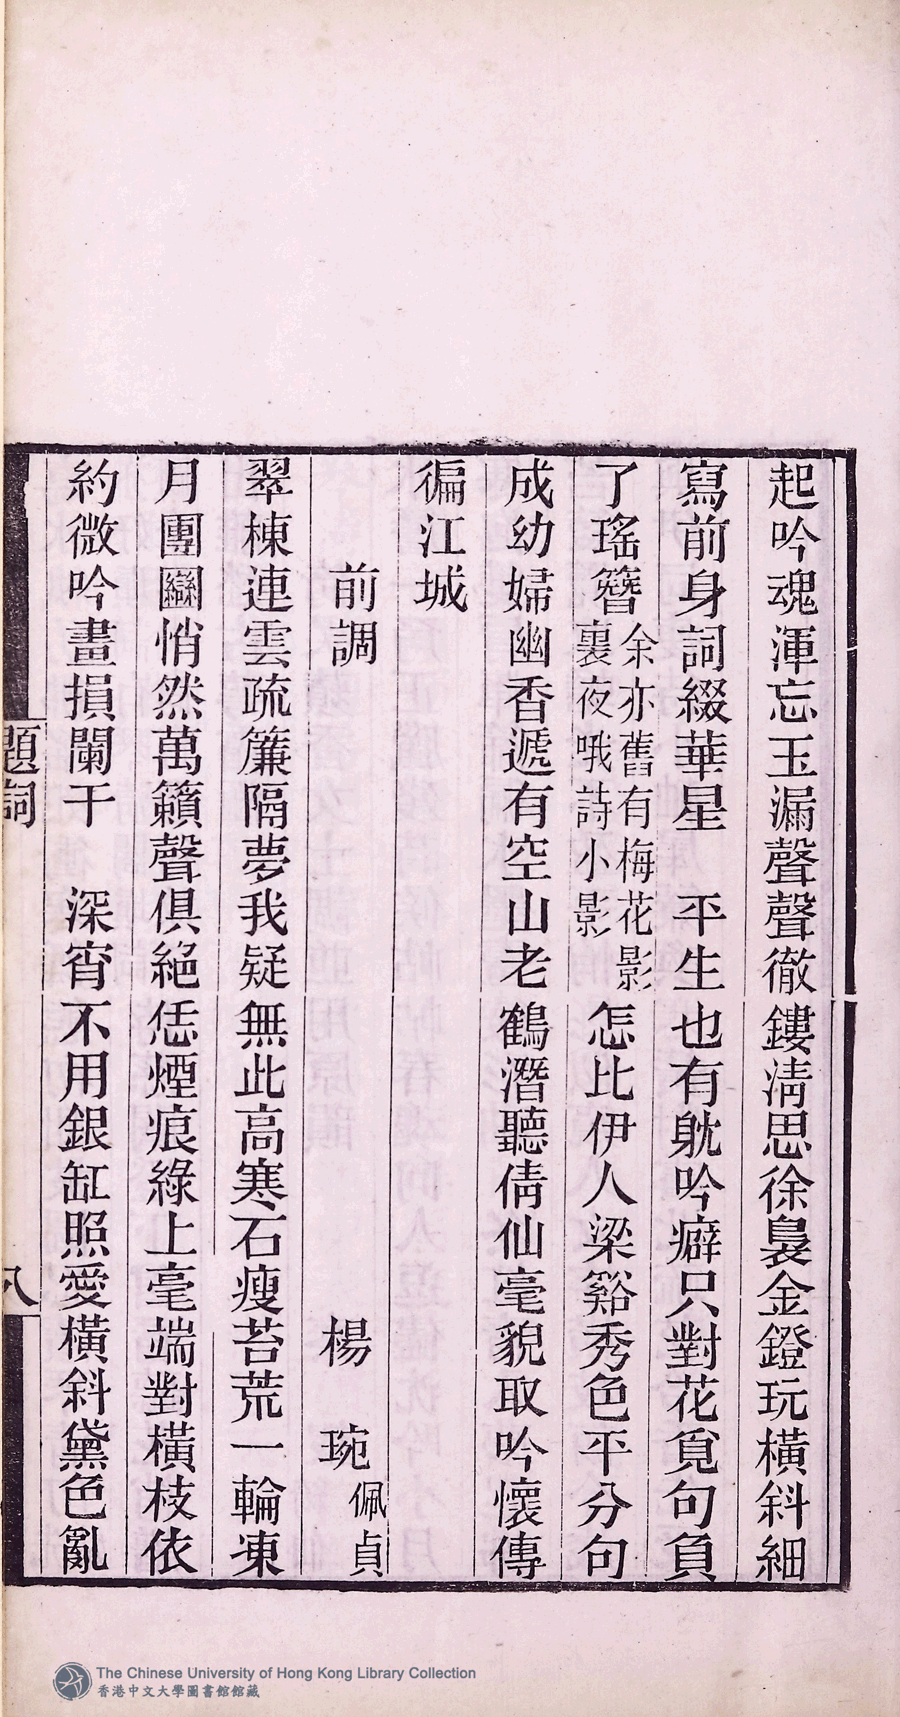 起吟魂渾忘玉漏聲聲徹鏤淸思徐裊金鐙玩橫斜細
寫前身詞綴華星　平生也有躭吟癖只對花覓句負
了瑤簪余亦舊有梅花影裏夜哦詩小影怎比伊人梁谿秀色平分句
成幼婦幽香遞有空山老鶴潛聽倩仙毫貌取吟懷傳
徧江城
前調　楊　琬佩貞
翠棟連雲疏簾隔夢我疑無此高寒石瘦苔荒一輪凍
月團圞悄然萬籟聲俱絕恁煙痕綠上毫端對橫枝依
約微吟畫損闌干　深宵不用銀缸照愛橫斜黛色亂
題詞
八
The Chinese University of Hong Kong Library Collection
香港中文大學圖書館館藏